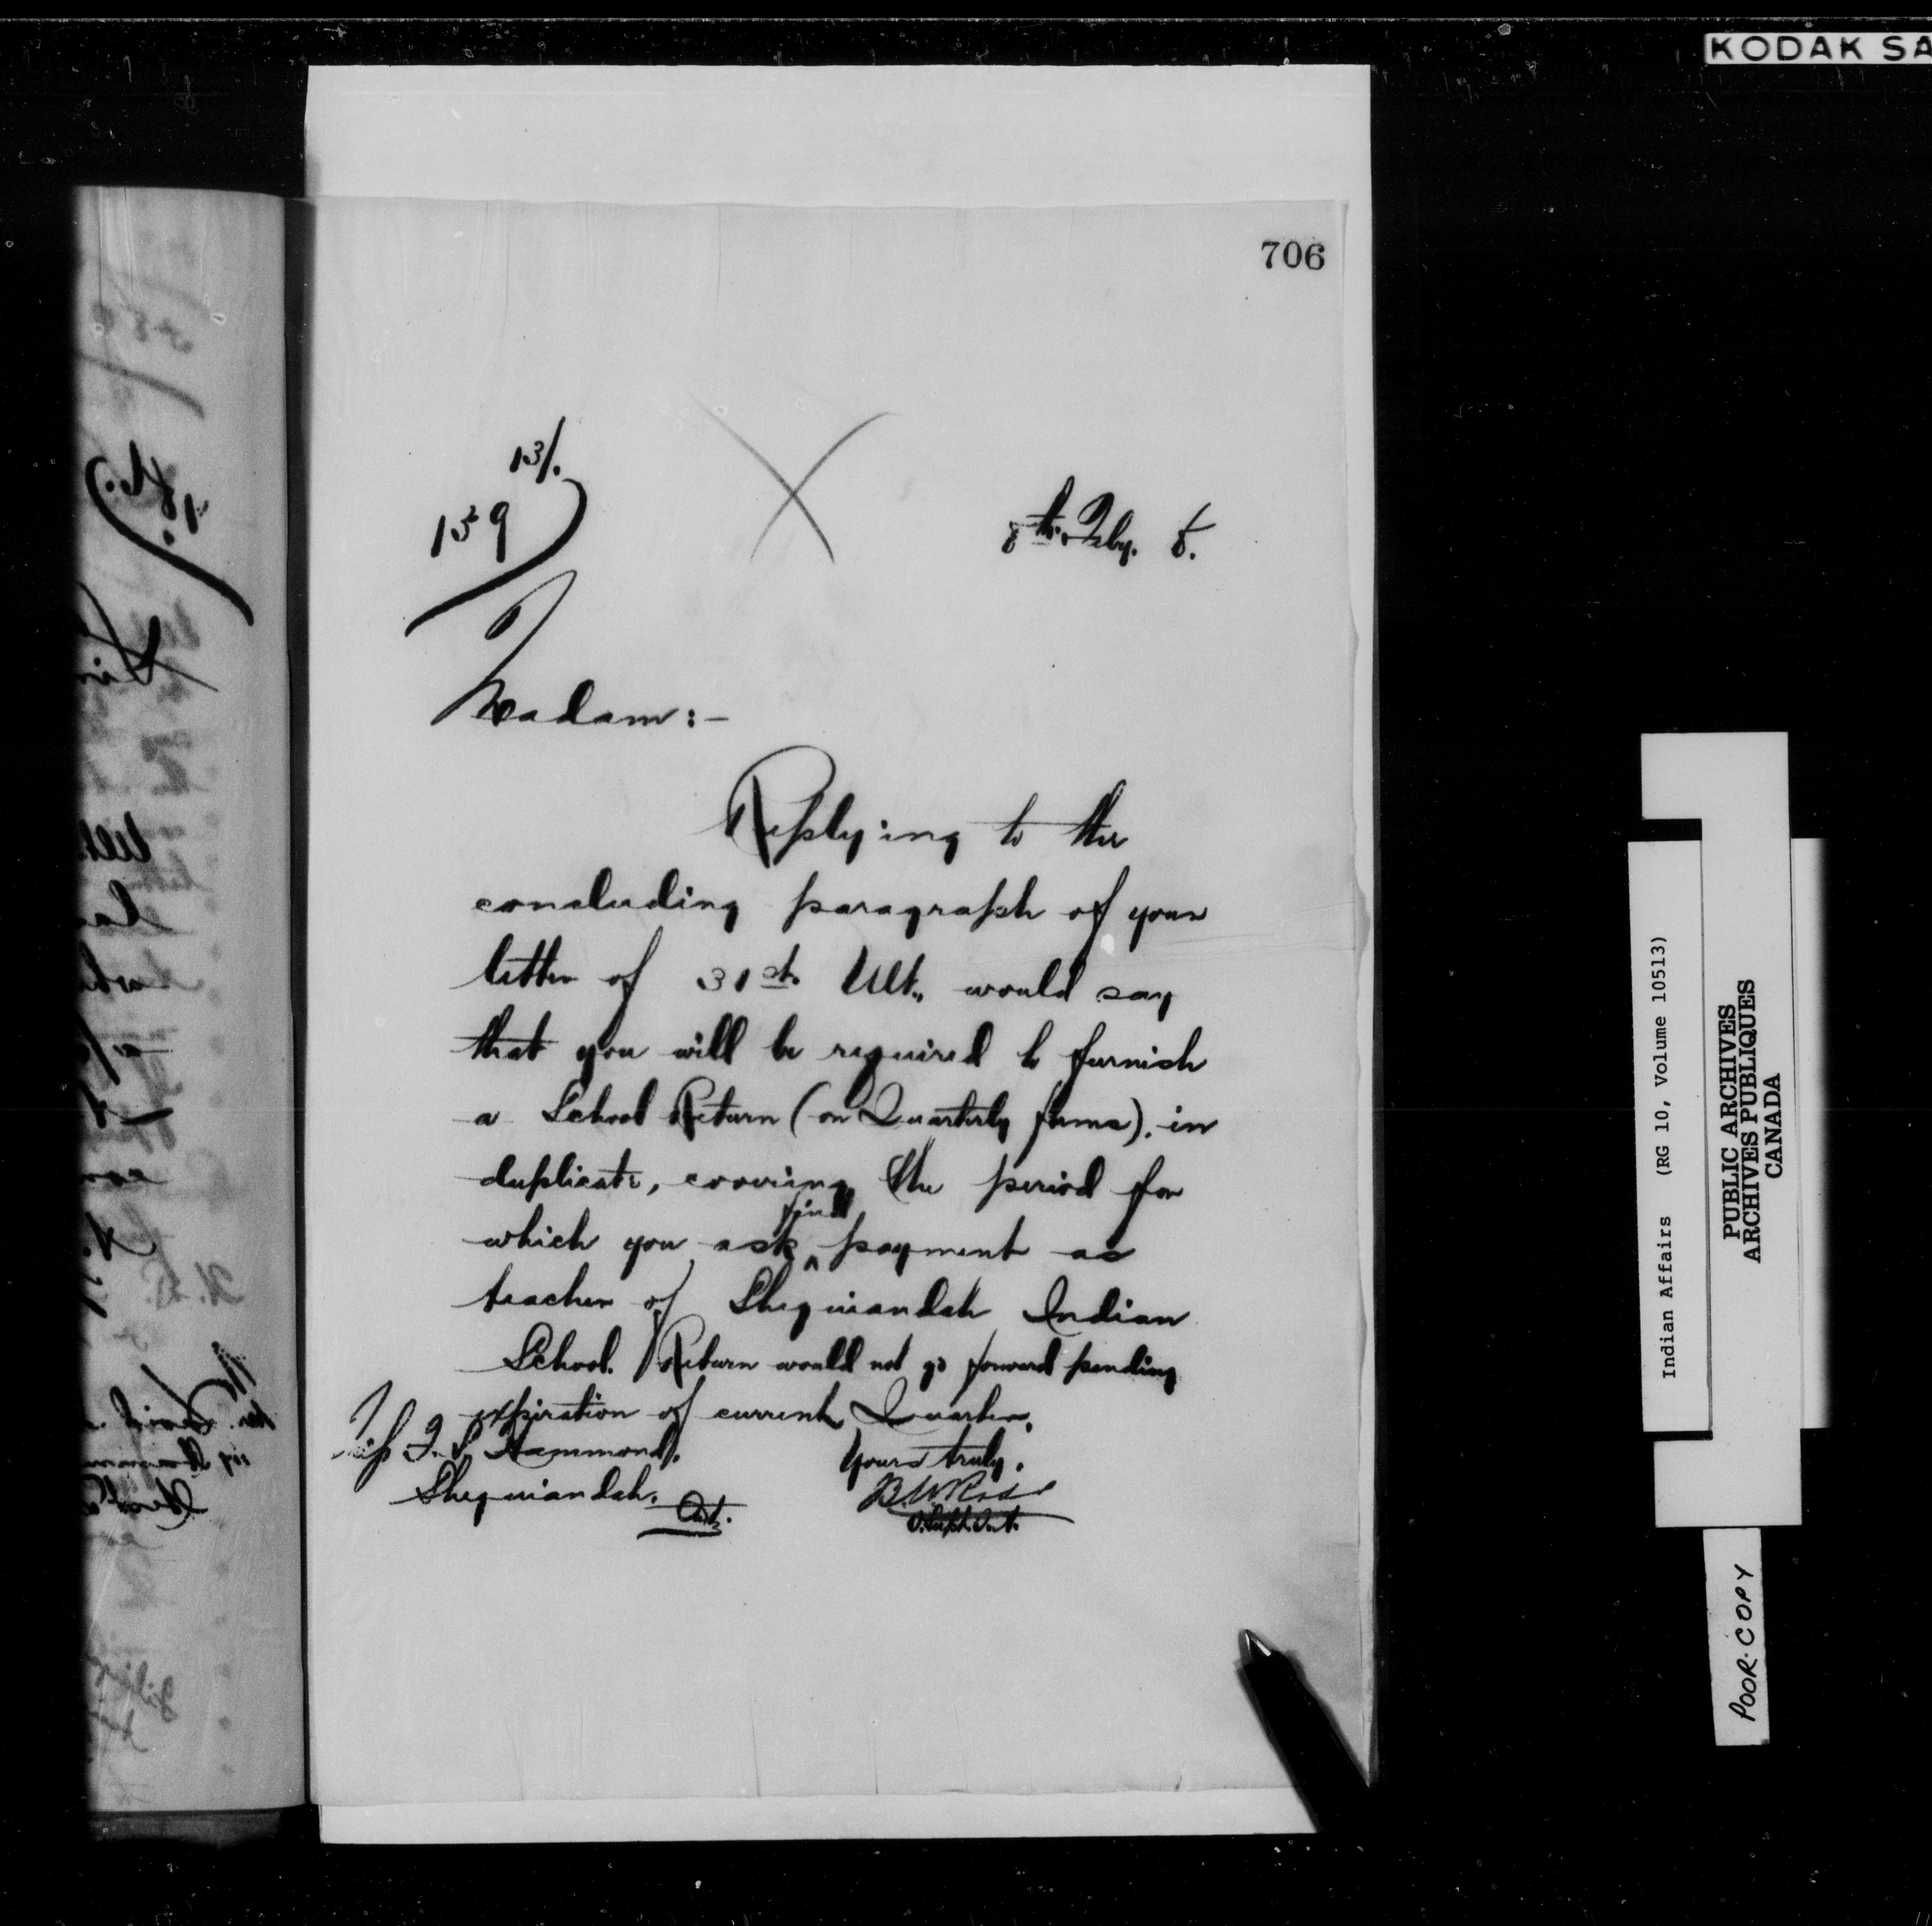 KODAK SA
706
13/.
139
8th. Feby. 5.
Madam:-
Replying to the
concluding paragraph of your
letter of 31st. Ult., would say
that you will be required to furnish
a School Return (on Quarterly forms), in
duplicate, covering the period for
which you ask payment as
teacher of Sheguiandah Indian
School. Return would not go forward pending
expiration of current Quarter.
Yours truly,
Miss F. S. Hammond,
Sheguiandah,
Ont.
B.W. Ross
Indian Affairs (RG 10, Volume 10513)
PUBLIC ARCHIVES
ARCHIVES PUBLIQUES
CANADA
POOR COPY